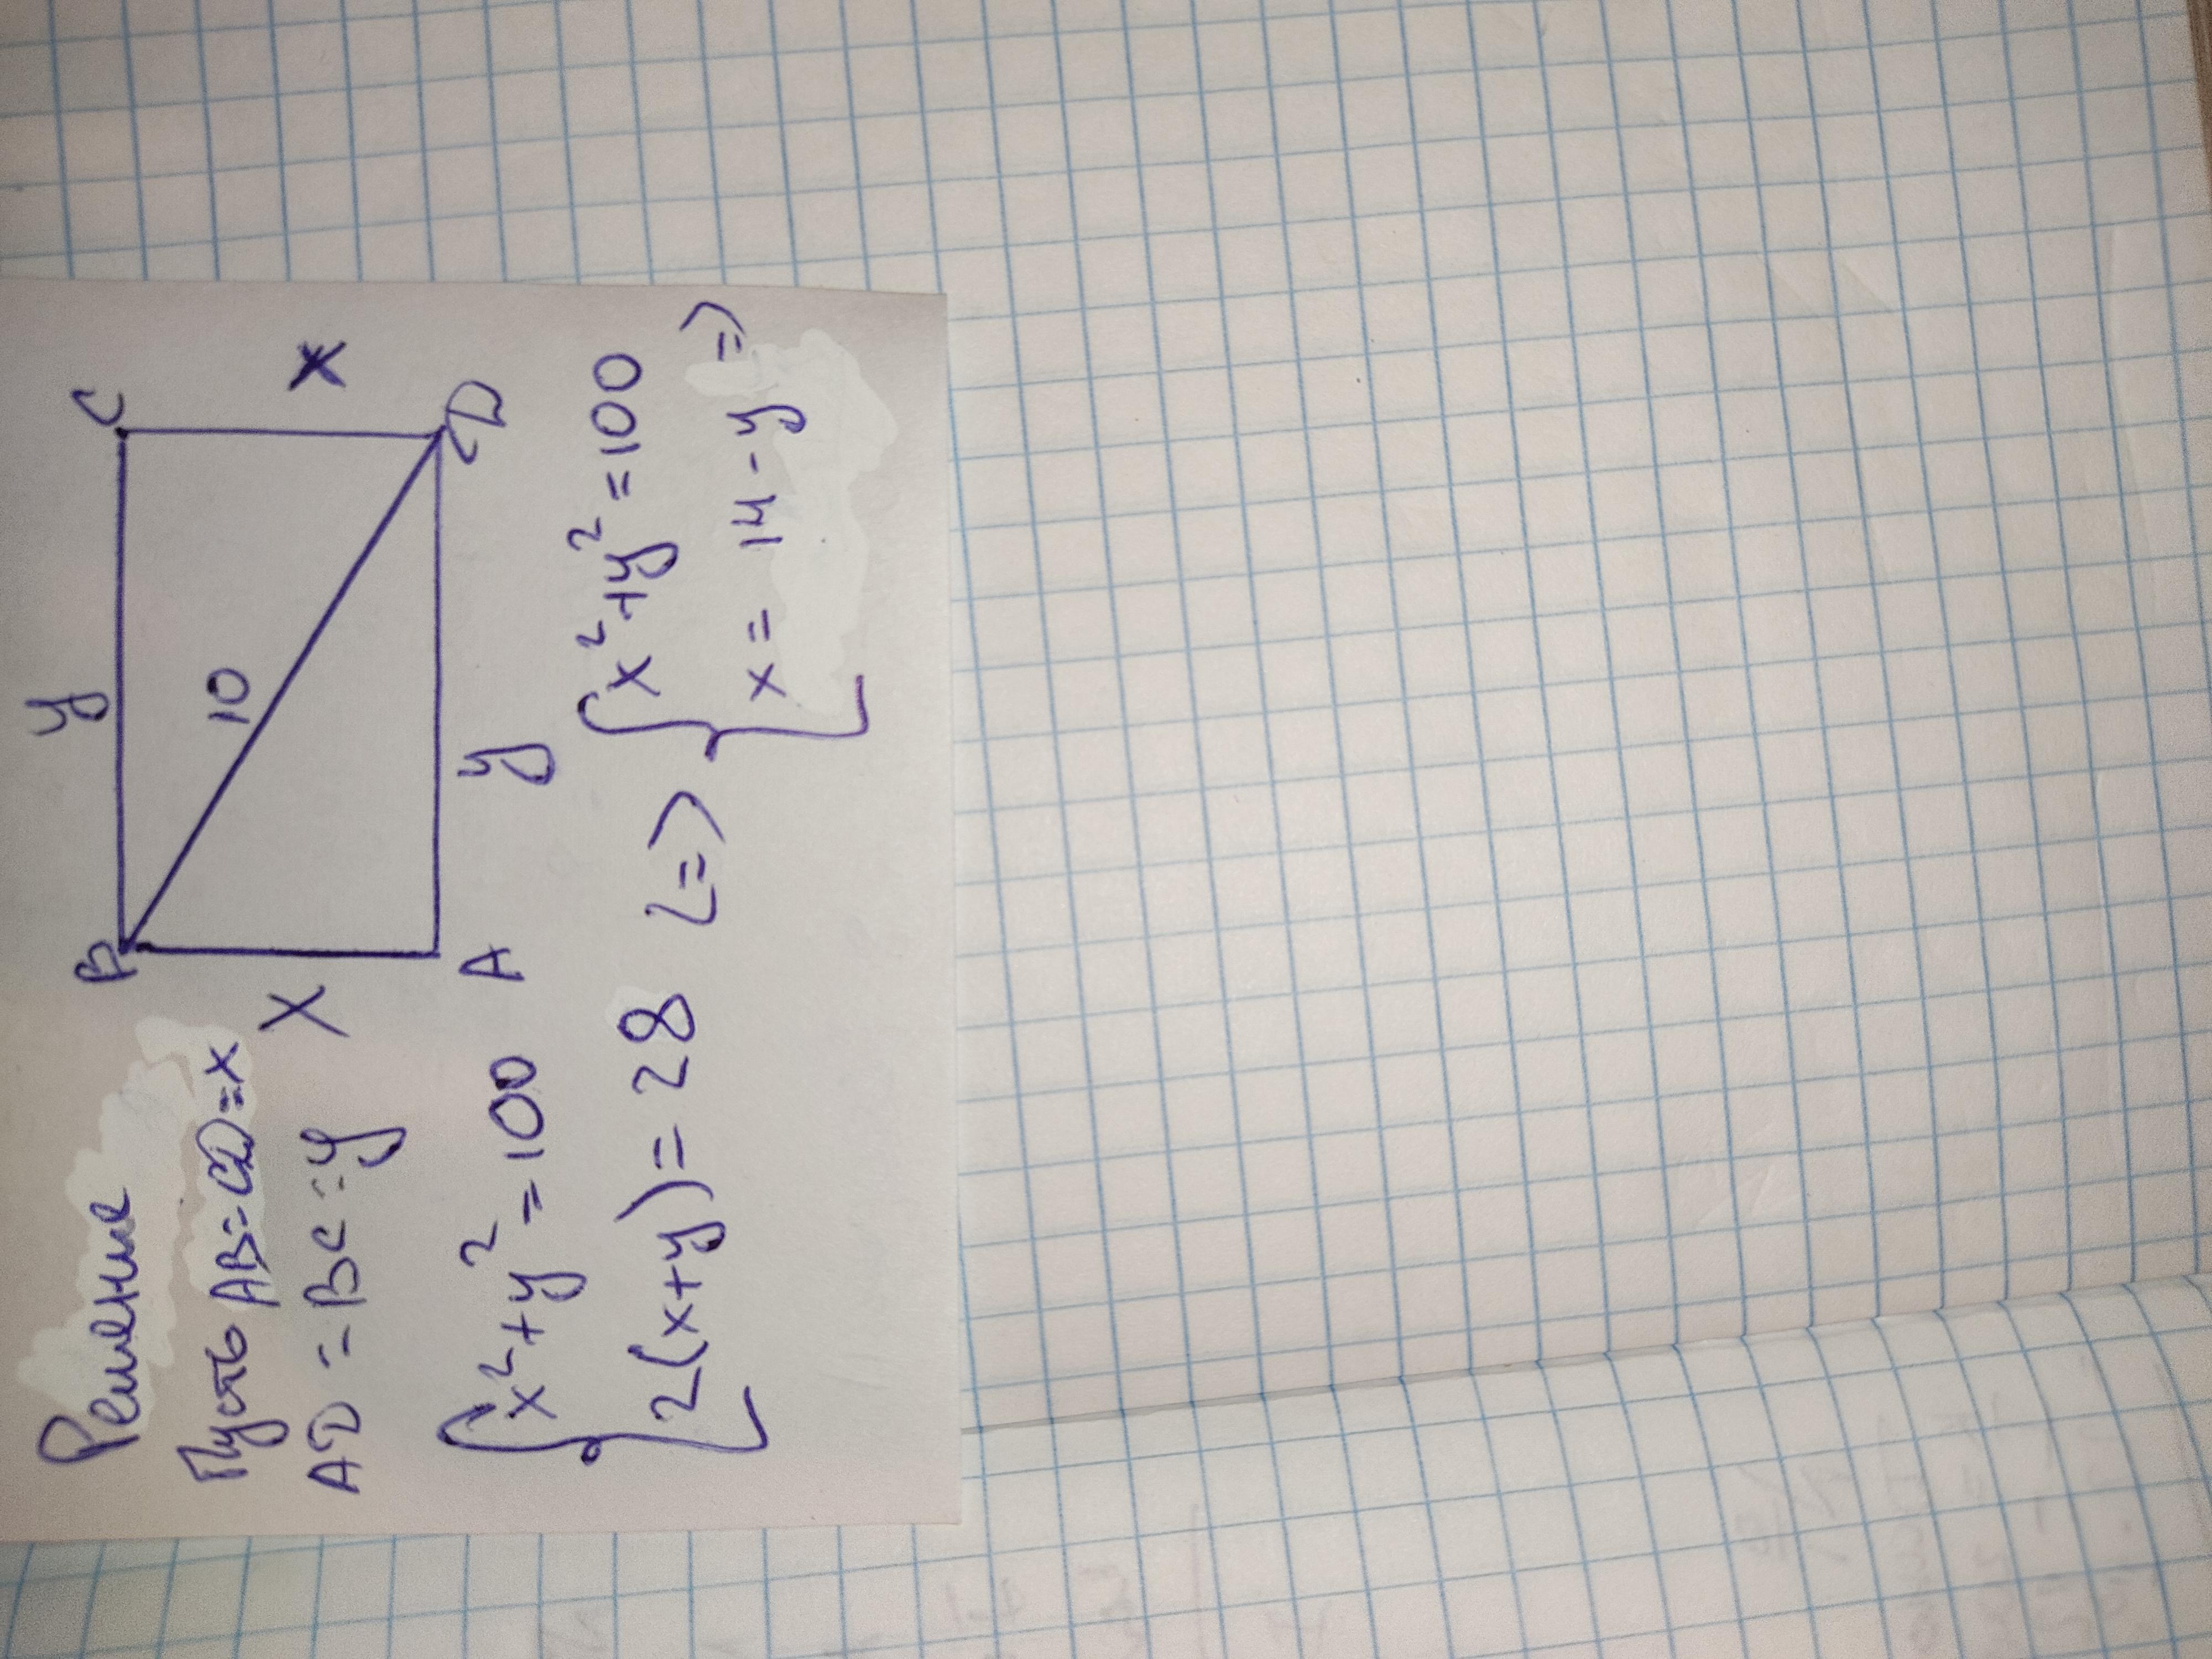 Решение
Пусть AB=CD=x
AD=BC=y
B
y
C
x
10
x
A
y
D
{x²+y²=100
2(x+y)=28 <=>
{x²+y²=100
x=14-y =>